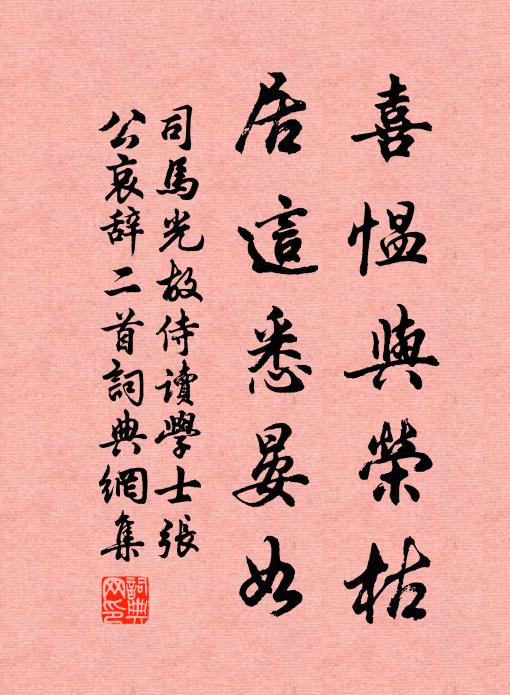 喜慍與榮枯
居這悉晏如
司馬光故侍讀學士張
公哀辞二首詞典網集
詞典
网印